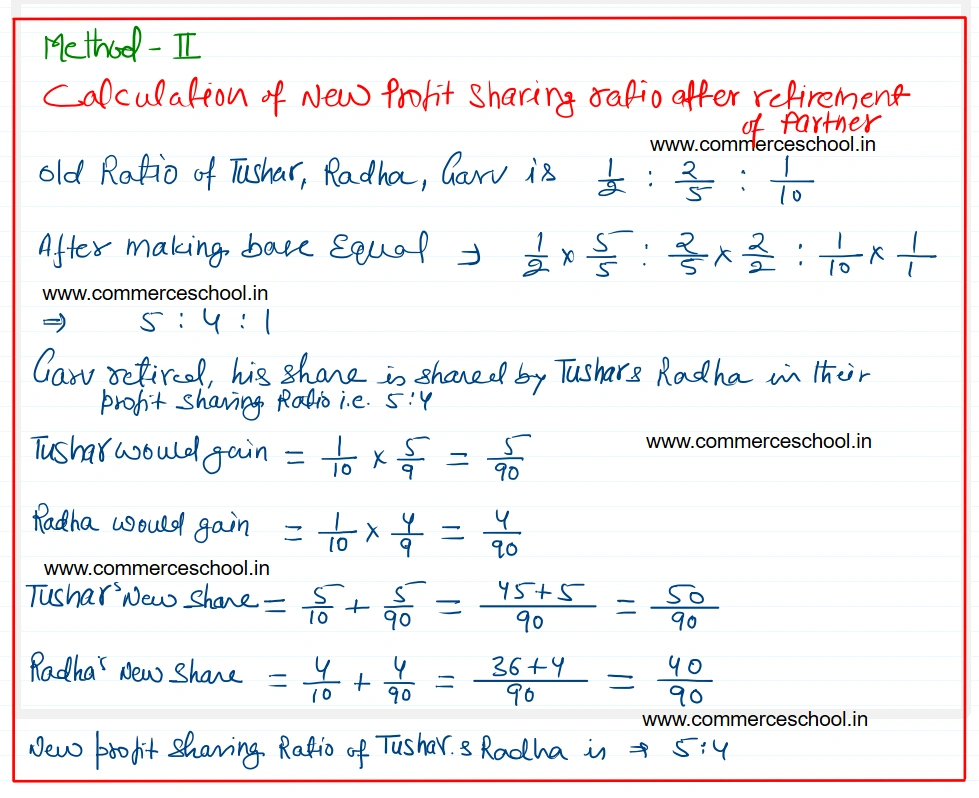 Method - II
Calculation of New Profit Sharing ratio after retirement
of Partner
www.commerceschool.in
Old Ratio of Tushar, Radha, Garv is 1/2 : 2/5 : 1/10
After making base Equal ⇒ 1/2 × 5/5 : 2/5 × 2/2 : 1/10 × 1/1
www.commerceschool.in
⇒ 5 : 4 : 1
Garv retired, his share is shared by Tushar & Radha in their
profit sharing Ratio i.e. 5:4
www.commerceschool.in
Tushar would gain = 1/10 × 5/9 = 5/90
Radha would gain = 1/10 × 4/9 = 4/90
www.commerceschool.in
Tushar's New Share = 5/10 + 5/90 = 45+5/90 = 50/90
Radha's New Share = 4/10 + 4/90 = 36+4/90 = 40/90
www.commerceschool.in
New profit Sharing Ratio of Tushar & Radha is ⇒ 5:4